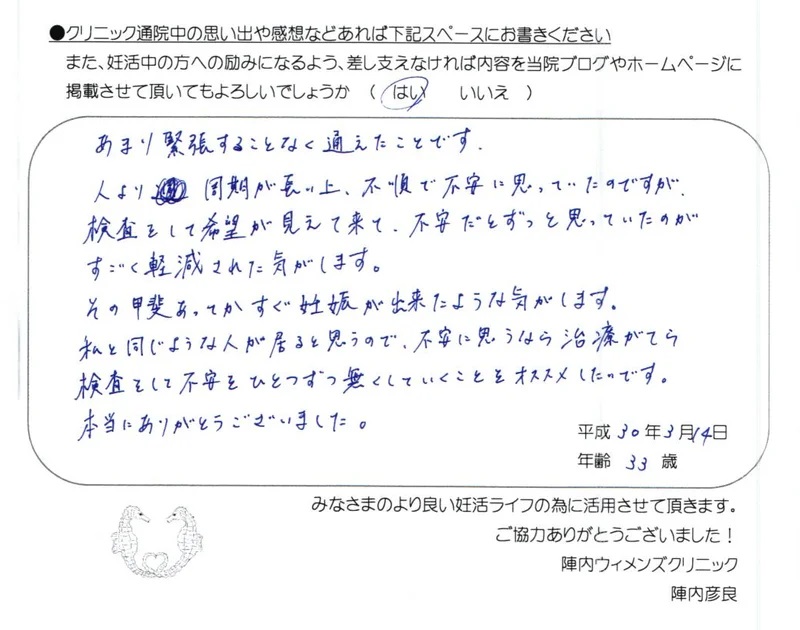 ●クリニック通院中の思い出や感想などあれば下記スペースにお書きください
また、妊活中の方への励みになるよう、差し支えなければ内容を当院ブログやホームページに
掲載させて頂いてもよろしいでしょうか （ はい　いいえ ）
あまり緊張することなく通えたことです.
人より 同期が長い上、不順で不安に思っていたのですが、
検査をして希望が見えて来て、不安だとずっと思っていたのが
すごく軽減された気がします。
その甲斐あってかすぐ妊娠が出来たような気がします。
私と同じような人が居ると思うので、不安に思うなら治療がてら
検査をして不安をひとつずつ無くしていくことをオススメしたいです。
本当にありがとうございました。
平成 30 年 3 月 14 日
年齢 33 歳
みなさまのより良い妊活ライフの為に活用させて頂きます。
ご協力ありがとうございました！
陣内ウィメンズクリニック
陣内彦良